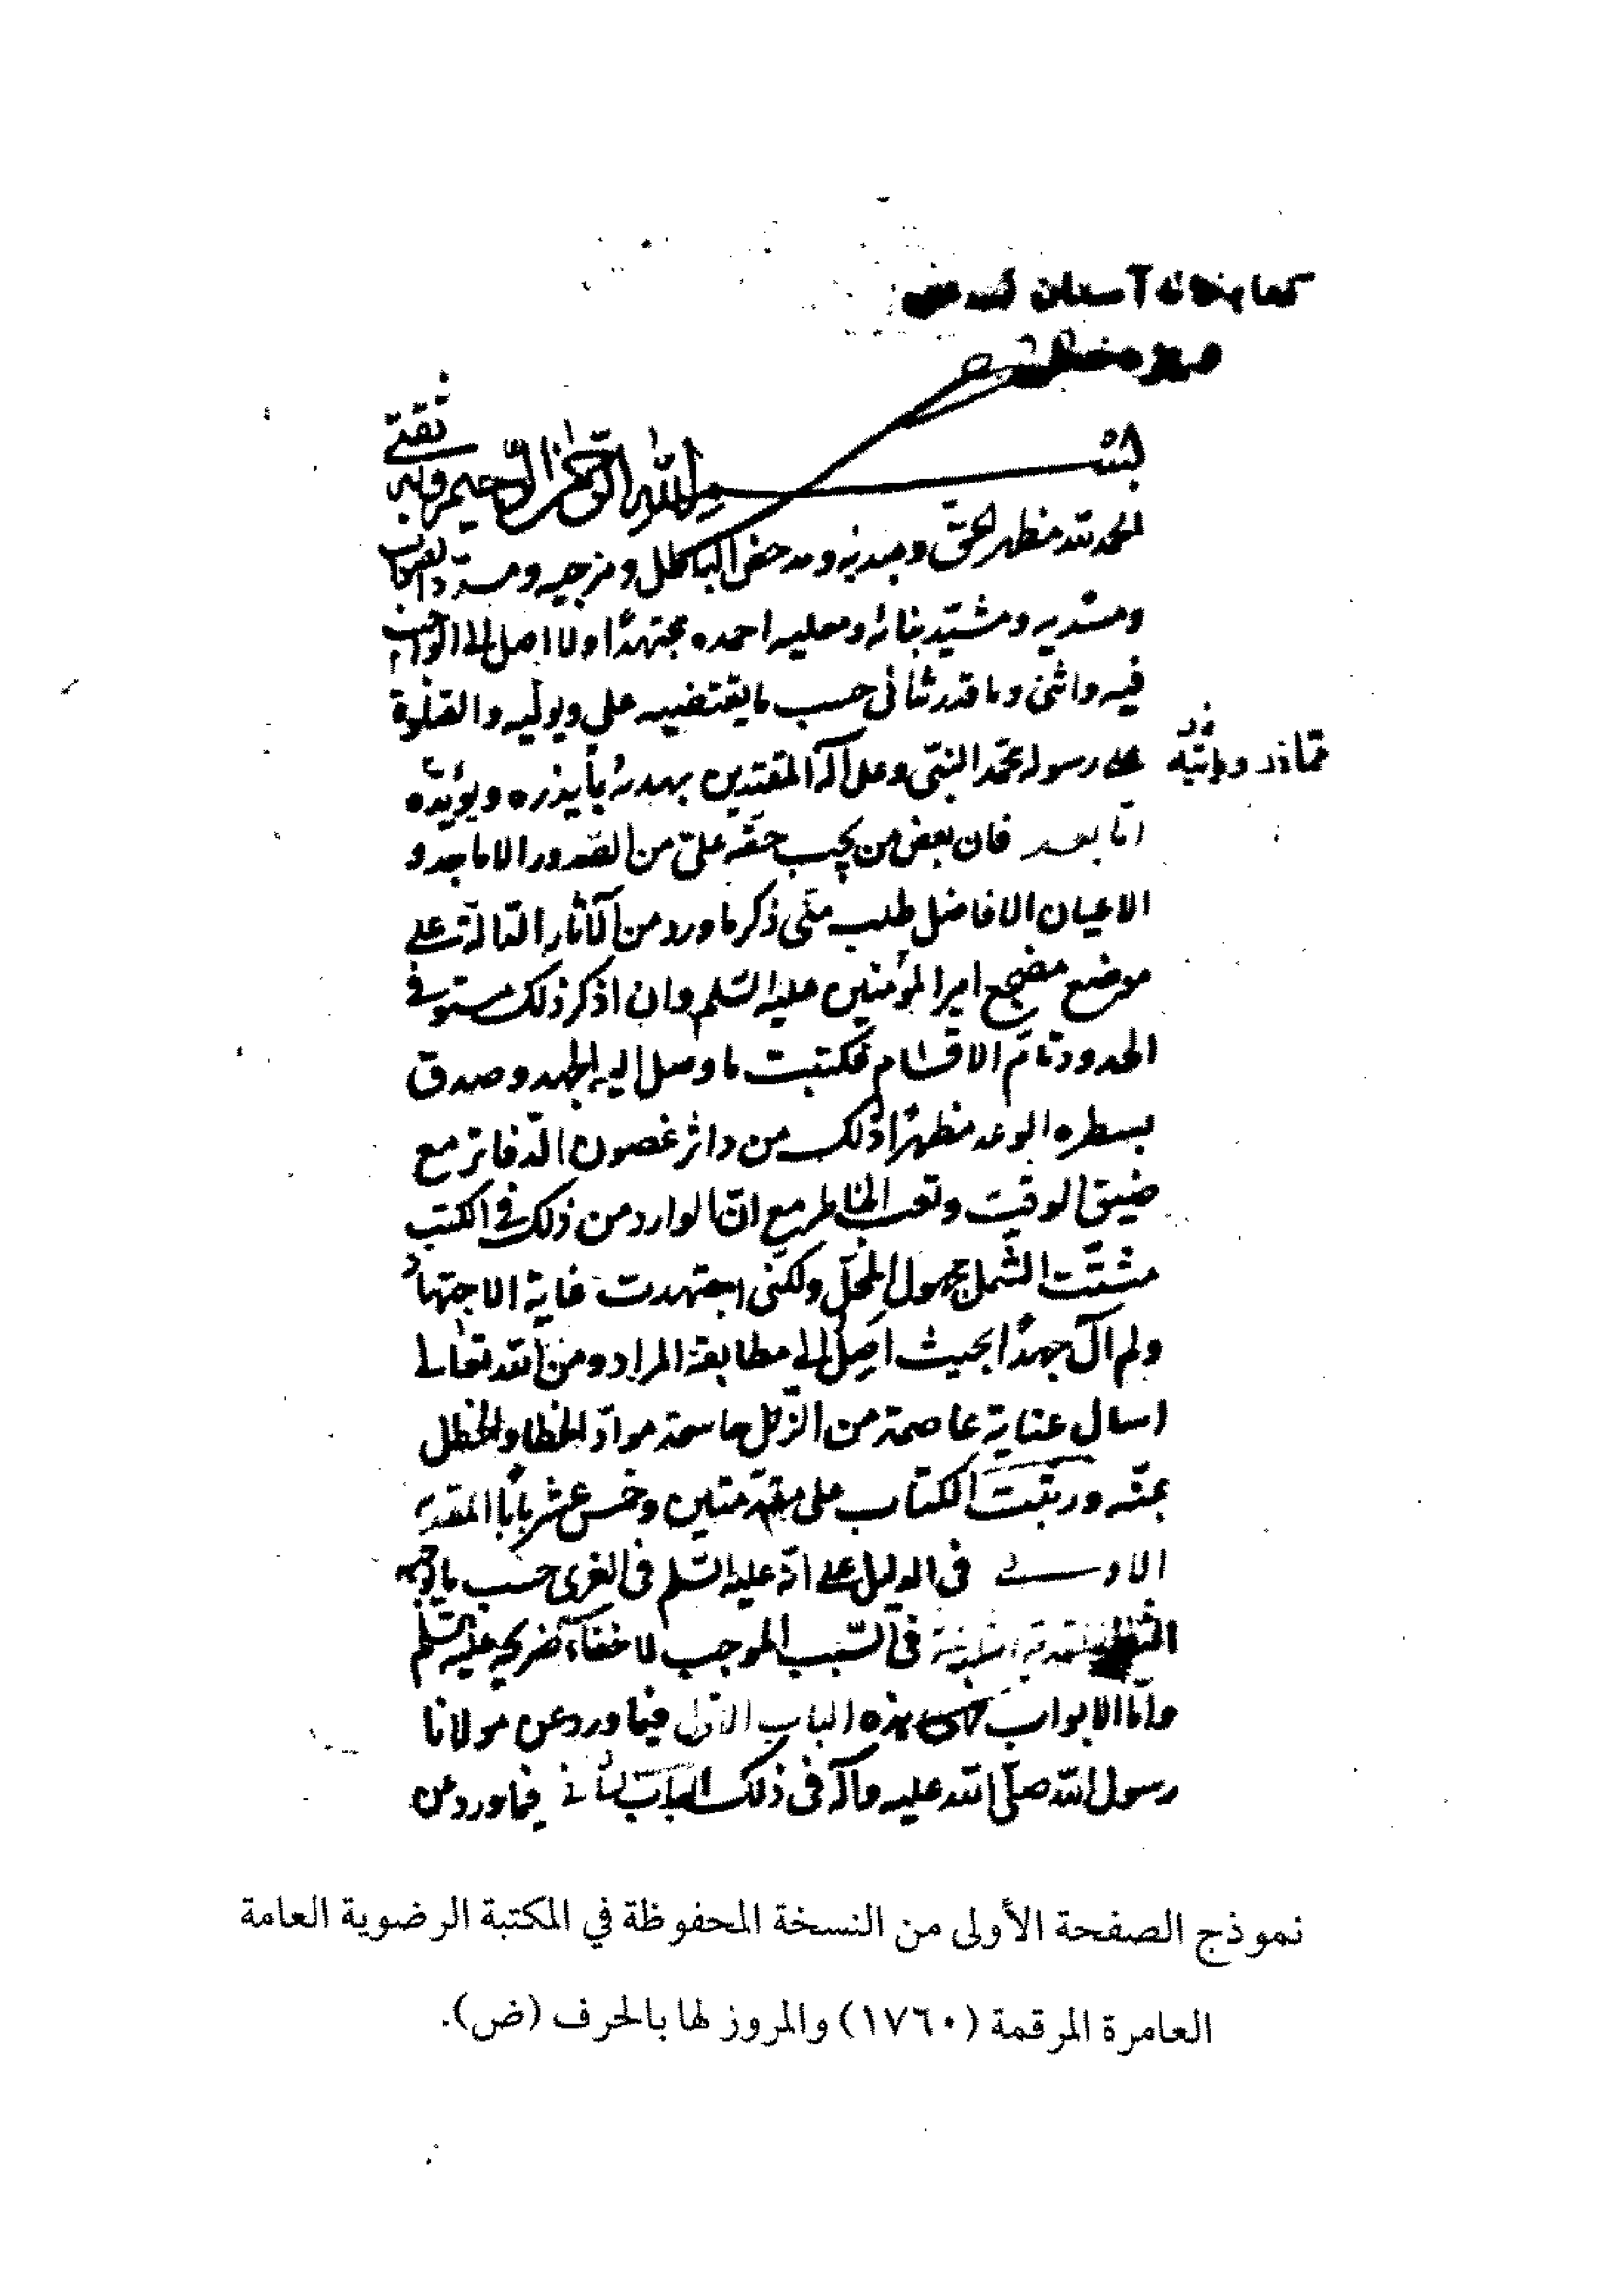 كتابخانه آستان قدس
بسم الله الرحمن الرحيم وبه ثقتي
الحمد لله مظهر الحق ومبديه ومدحض الباطل ومزجيه ومسدد الصواب
ومسديه ومشيّد بنائه ومعليه احمده مجتهدًا ولا اصل الى الواجب
فيه واثنى وما قدر ثنائى حسب ما يقتضيه على ويوليه والصلوة
على رسوله محمّد النبىّ وعلى آله المقتدين بهديه يأيذره ويؤيّده
امّا بعد فان بعض من يجب حقّه علىّ من الصّدور الاماجد و
الاعيان الافاضل طلب منّى ذكر ما ورد من الآثار الدّالّة على
موضع مضجع امير المؤمنين عليه السّلم وان اذكر ذلك مستوفى
الحدود تامّ الاقسام فكتبت ما وصل اليه الجهد وصدق
بسطره الوعد مظهرًا ذلك من داثر غصون الدّفاتر مع
ضيق الوقت وتعب الخاطر مع انّ الوارد من ذلك فى الكتب
مشتّت الشّمل مجهول المحلّ ولكنى اجتهدت غاية الاجتهاد
ولم آل جهدًا بحيث اصل الى مطابقة المراد ومن الله تعالى
اسال عناية عاصمة من الزّلل حاسمة موادّ الخطا والخطل
بمنّه ورتبت الكتاب على مقدّمتين وخمس عشر بابًا المقدمة
الاولى فى الدليل على انّه عليه السّلم فى الغرى حسب ما يوجبه
النظر المقدمة الثانية فى السّبب الموجب لاخفاء ضريحه عليه السّلم
وامّا الابواب فهى هذه الباب الاوّل فيما ورد عن مولانا
رسول الله صلّى الله عليه وآله فى ذلك الباب الثانى فيما ورد عن
نموذج الصفحة الأولى من النسخة المحفوظة في المكتبة الرضوية العامة
العامرة المرقمة (١٧٦٠) والمروز لها بالحرف (ض).